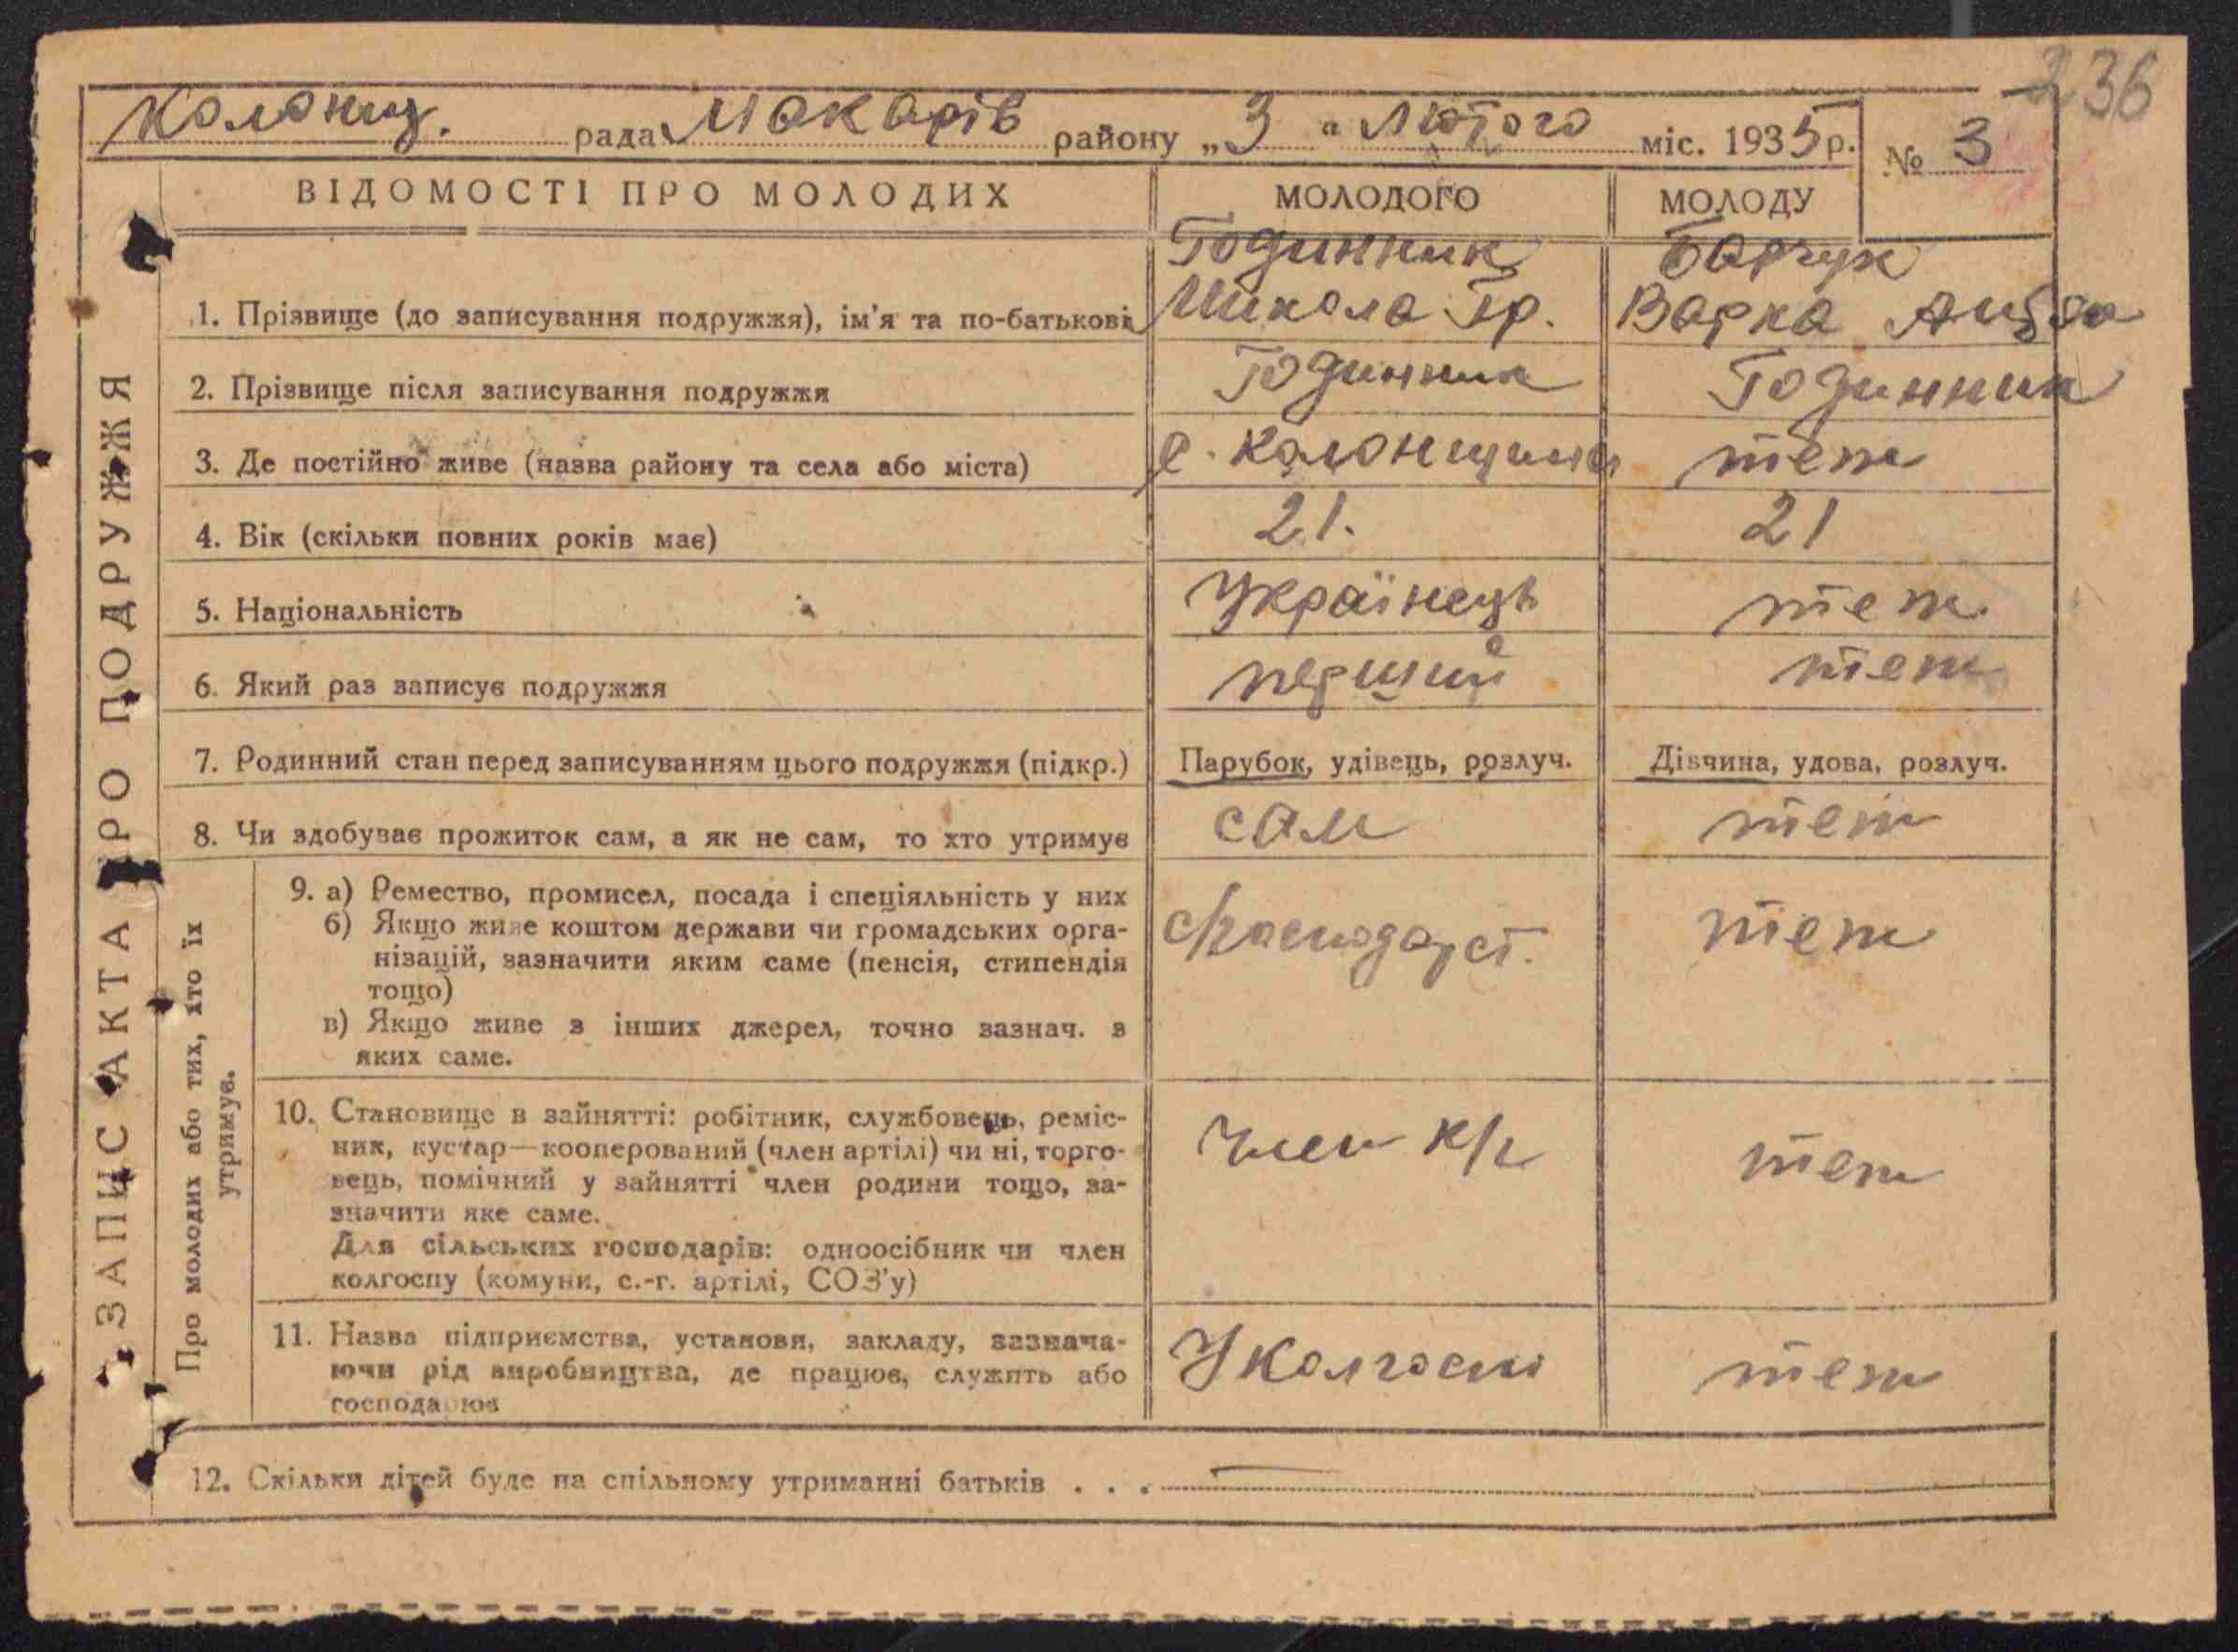 236
Колонщ. рада Макарів району „3 “ Лютого міс. 1935 р. № 3
ВІДОМОСТІ ПРО МОЛОДИХ МОЛОДОГО МОЛОДУ
Годинник Барчук
1. Прізвище (до записування подружжя), ім'я та по-батькові Микола Гр. Варка
2. Прізвище після записування подружжя Годинник Годинник
3. Де постійно живе (назва району та села або міста) с. Колонщина теж
4. Вік (скільки повних років має) 21. 21
5. Національність Українець теж
6. Який раз записує подружжя перший теж
7. Родинний стан перед записуванням цього подружжя (підкр.) Парубок, удівець, розлуч. Дівчина, удова, розлуч.
8. Чи здобуває прожиток сам, а як не сам, то хто утримує сам теж
ЗАПИС АКТА ПРО ПОДРУЖЖЯ
Про молодих або тих, хто їх
утримує.
9. а) Ремество, промисел, посада і спеціяльність у них
б) Якщо живе коштом держави чи громадських орга-
нізацій, зазначити яким саме (пенсія, стипендія
тощо)
в) Якщо живе з інших джерел, точно зазнач. з
яких саме.
с/господарст. теж
10. Становище в зайнятті: робітник, службовець, реміс-
ник, кустар—кооперований (член артілі) чи ні, торго-
вець, помічний у зайнятті член родини тощо, за-
значити яке саме.
Для сільських господарів: одноосібник чи член
колгоспу (комуни, с.-г. артілі, СОЗ'у)
член к/г теж
11. Назва підприємства, установи, закладу, зазнача-
ючи рід виробництва, де працює, служить або
господарює
У колгоспі теж
12. Скільки дітей буде на спільному утриманні батьків . . . —